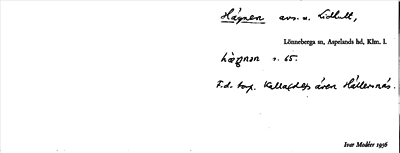 Hägnen avs. u. Lidhult,
Lönneberga sn, Aspelands hd, Klm. l.
s. 65.
F.d. torp. Kallades även Hällersnäs.
Ivar Modéer 1936